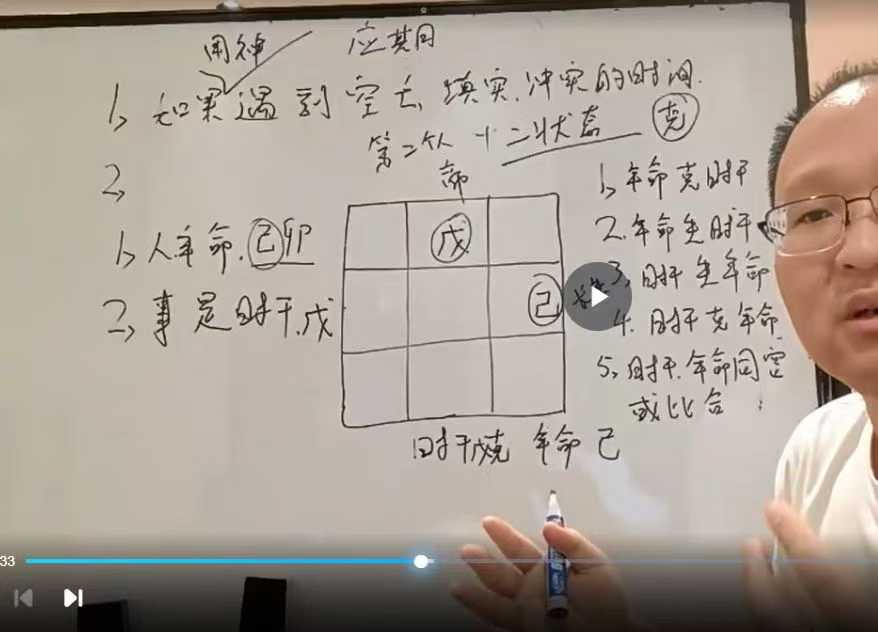 用神 应其同
1、如果遇到空亡,填实.冲实的时间.
第二个 十二状态 克
2、
1、人年命.己卯
2、事是时干.戊
戊
己
1、年命克时干
2.年命生时干
3、时干生年命
4.时干克年命
5、时干.年命同宫
或比合
时干戊克 年命己
33